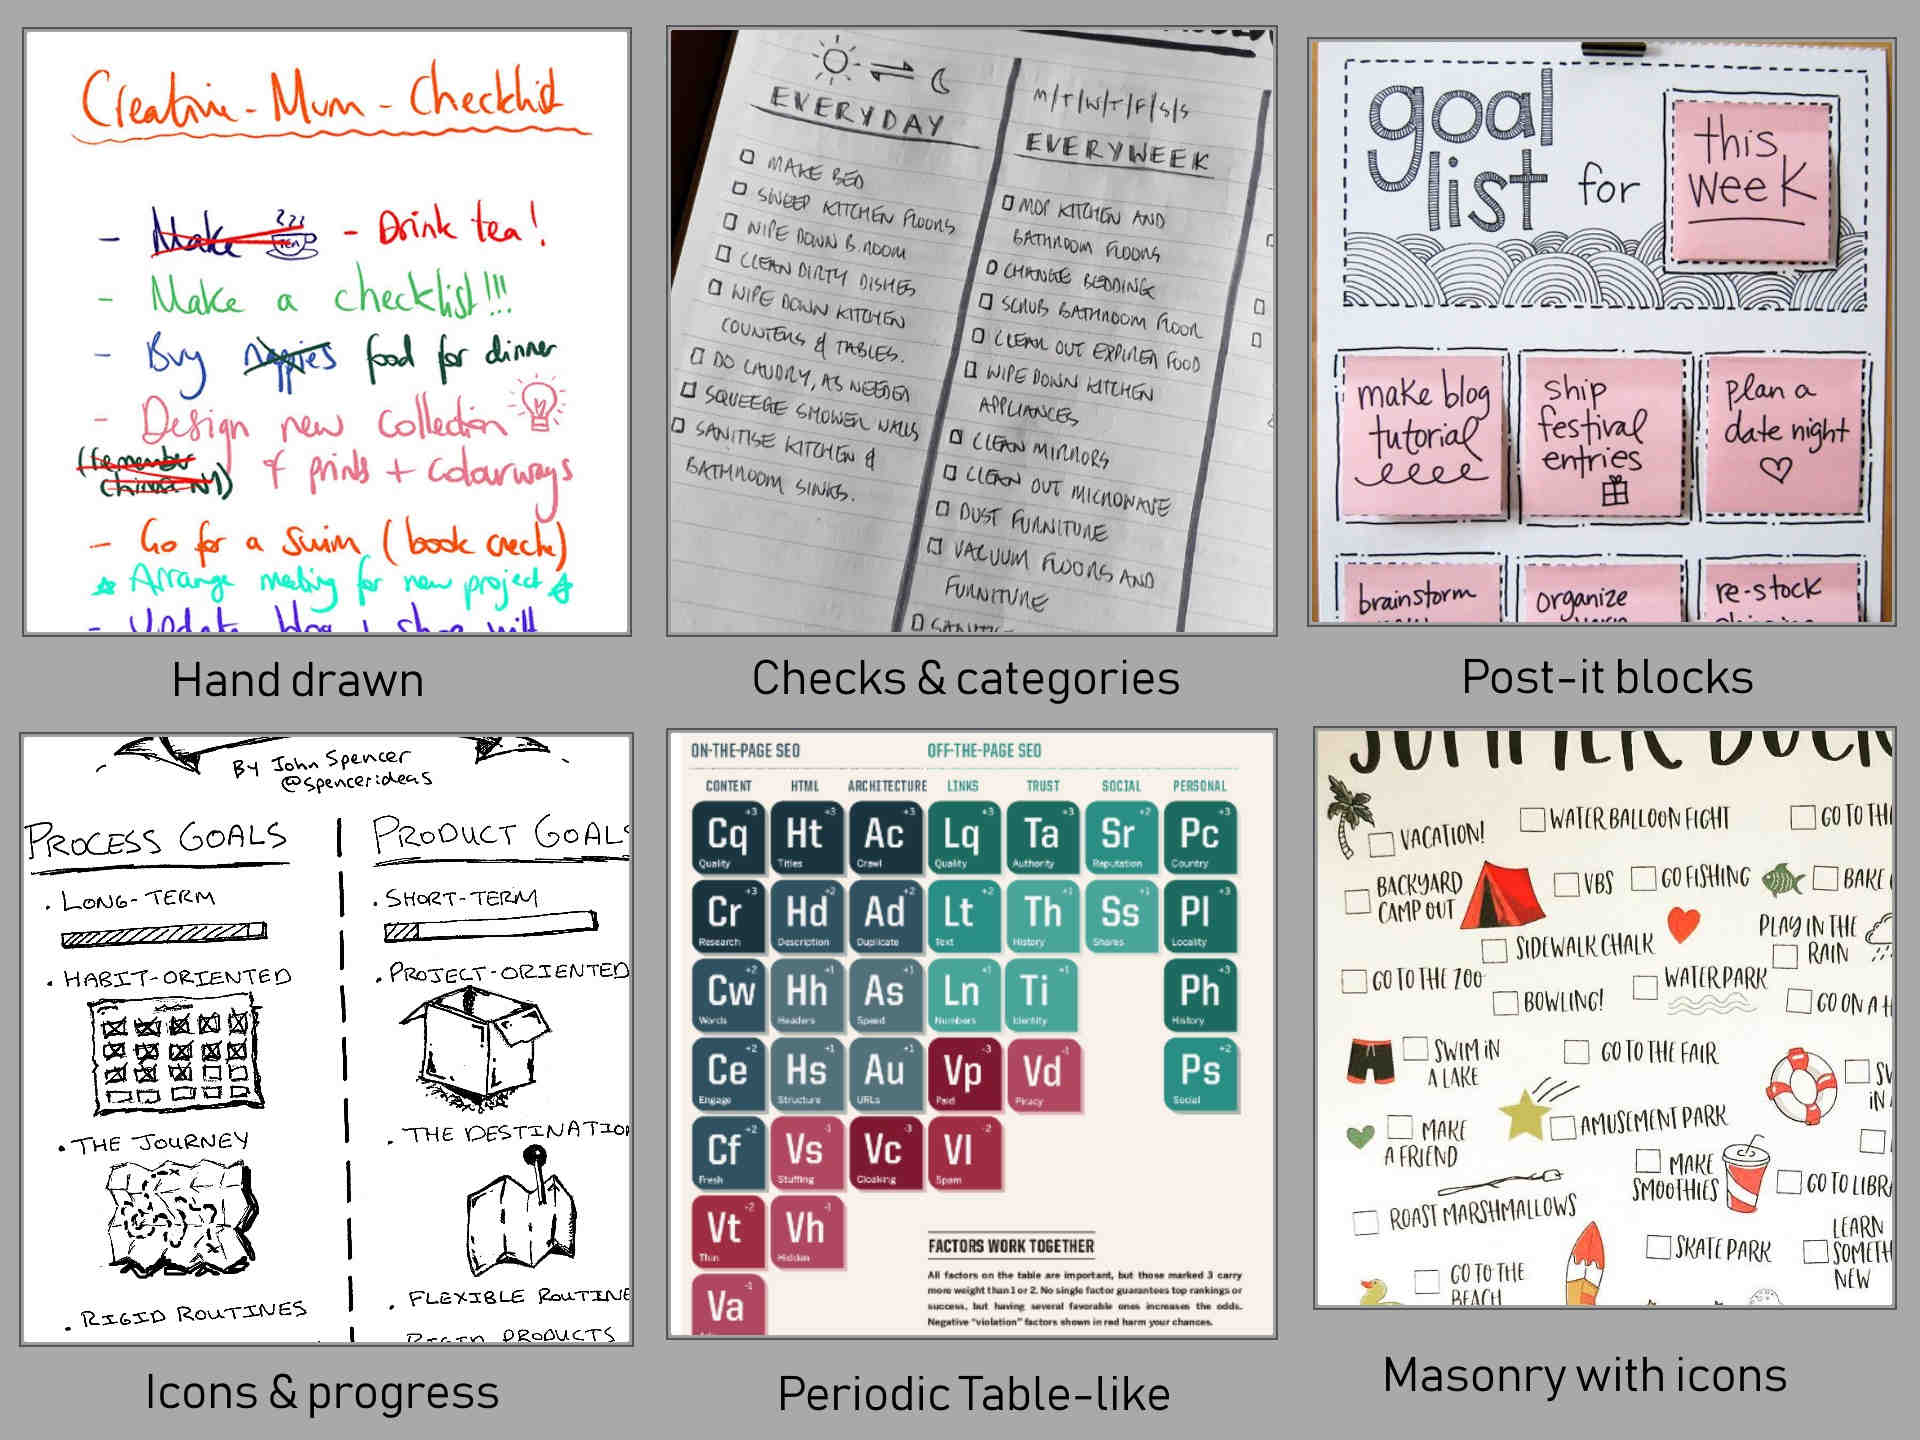 Creative - Mum - Checklist
- Make TEA - Drink tea!
- Make a checklist!!!
- Buy nappies food for dinner
- Design new collection
(Remember
of prints + colourways
- Go for a swim (book creche)
☆ Arrange meeting for new project ☆
- Update blog + shop with
Hand drawn
EVERYDAY
MAKE BED
SWEEP KITCHEN FLOORS
WIPE DOWN B.ROOM
CLEAN DIRTY DISHES
WIPE DOWN KITCHEN
COUNTERS & TABLES.
DO LAUDRY, AS NEEDED
SQUEEGE SHOWER WALLS
SANITISE KITCHEN &
BATHROOM SINKS.
M/T/W/T/F/S/S
EVERYWEEK
MOP KITCHEN AND
BATHROOM FLOORS
CHANGE BEDDING
SCRUB BATHROOM FLOOR
CLEAN OUT EXPIRED FOOD
WIPE DOWN KITCHEN
APPLIANCES
CLEAN MIRRORS
CLEAN OUT MICROWAVE
DUST FURNITURE
VACUUM FLOORS AND
FURNITURE
Checks & categories
goal
list for
this
week
make blog
tutorial
ship
festival
entries
plan a
date night
brainstorm
organize
re-stock
Post-it blocks
By John Spencer
@spencerideas
PROCESS GOALS
. LONG-TERM
. HABIT-ORIENTED
. THE JOURNEY
. RIGID ROUTINES
PRODUCT GOALS
. SHORT-TERM
. PROJECT-ORIENTED
. THE DESTINATIO
. FLEXIBLE ROUTINE
RIGID PRODUCTS
Icons & progress
ON-THE-PAGE SEO OFF-THE-PAGE SEO
CONTENT HTML ARCHITECTURE LINKS TRUST SOCIAL PERSONAL
+3 +3 +3 +3 +3 +2 +3
Cq Ht Ac Lq Ta Sr Pc
Quality Titles Crawl Quality Authority Reputation Country
+3 +2 +2 +2 +1 +1 +3
Cr Hd Ad Lt Th Ss Pl
Research Description Duplicate Text History Shares Locality
+2 +1 +1 +1 +1 +3
Cw Hh As Ln Ti Ph
Words Headers Speed Numbers Identity History
+2 +1 +1 -3 -1 +2
Ce Hs Au Vp Vd Ps
Engage Structure URLs Paid Piracy Social
+2 -1 -3 -2
Cf Vs Vc Vl
Fresh Stuffing Cloaking Spam
-2 -1
Vt Vh
Thin Hidden
-1
Va
FACTORS WORK TOGETHER
All factors on the table are important, but those marked 3 carry
more weight than 1 or 2. No single factor guarantees top rankings or
success, but having several favorable ones increases the odds.
Negative “violation” factors shown in red harm your chances.
Periodic Table-like
SUMMER BUCK
VACATION!
WATER BALLOON FIGHT
GO TO TH
BACKYARD
CAMP OUT
VBS
GO FISHING
BAKE
SIDEWALK CHALK
PLAY IN THE
RAIN
GO TO THE ZOO
BOWLING!
WATER PARK
GO ON A H
SWIM IN
A LAKE
GO TO THE FAIR
SW
IN
MAKE
A FRIEND
AMUSEMENT PARK
MAKE
SMOOTHIES
GO TO LIBRA
ROAST MARSHMALLOWS
SKATE PARK
LEARN
SOMETH
NEW
GO TO THE
BEACH
Masonry with icons